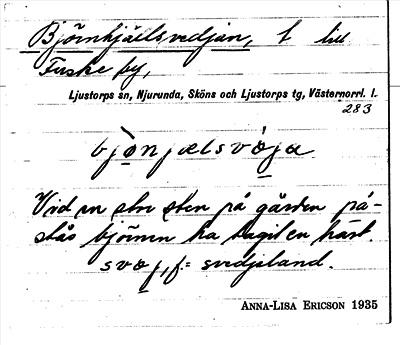 Björnhjälsvedjan, t till
Fuske by,
Ljustorps sn, Njurunda, Sköns och Ljustorps tg, Västernorrl. l.
283
bjὸnjælsvὸja
Vid en stor sten på gården på-
stås björnen ha tagit en häst.
svøj, f. = svedjeland.
ANNA-LISA ERICSON 1935